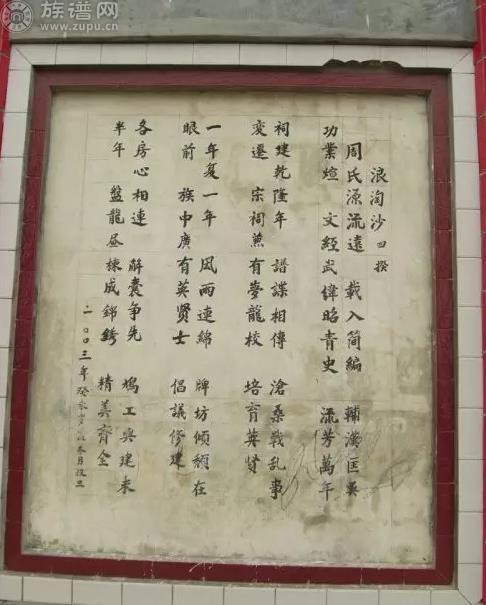 族谱网
www.zupu.cn
浪淘沙 四揆
周氏源流遠 載入简編 輔漢匡吳
功業煊 文經武偉昭青史 流芳萬年
祠建乾隆年 譜諜相傳 滄桑戰乱事
変遷 宗祠 有夢龍校 培育英賢
一年复一年 风雨連綿 牌坊傾頹在
眼前 族中廣有英賢士 倡議修建
各房心相連 解囊争先 鳩工興建未
半年 盤龍昼棟成錦銹 精美齊全
二00三年癸未